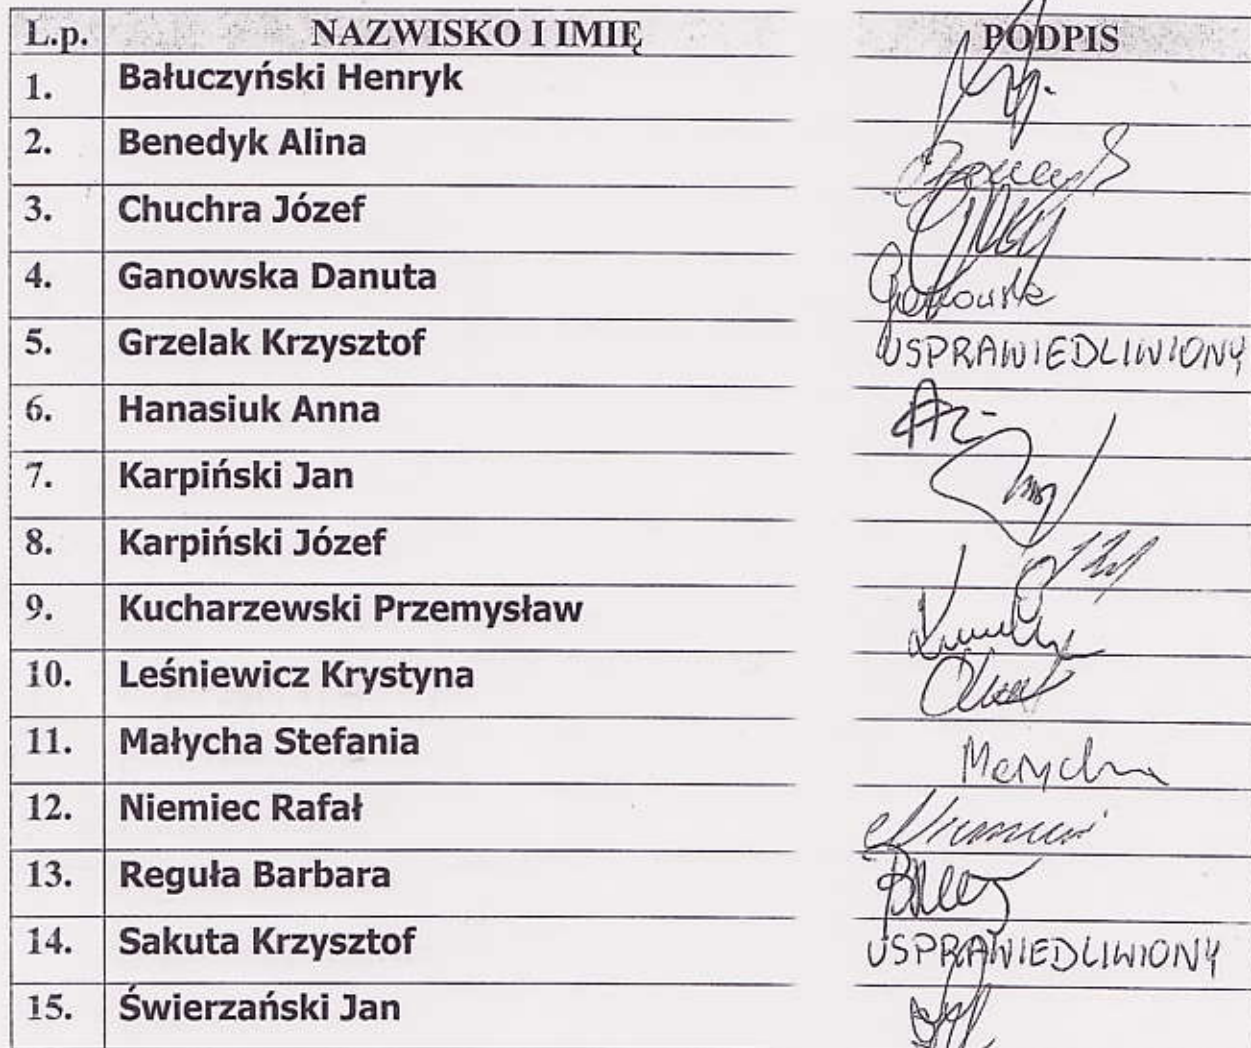 L.p. NAZWISKO I IMIĘ PODPIS
1. Bałuczyński Henryk
2. Benedyk Alina
3. Chuchra Józef
4. Ganowska Danuta Ganowska
5. Grzelak Krzysztof USPRAWIEDLIWIONY
6. Hanasiuk Anna
7. Karpiński Jan
8. Karpiński Józef
9. Kucharzewski Przemysław
10. Leśniewicz Krystyna
11. Małycha Stefania Małycha
12. Niemiec Rafał
13. Reguła Barbara
14. Sakuta Krzysztof USPRAWIEDLIWIONY
15. Świerzański Jan